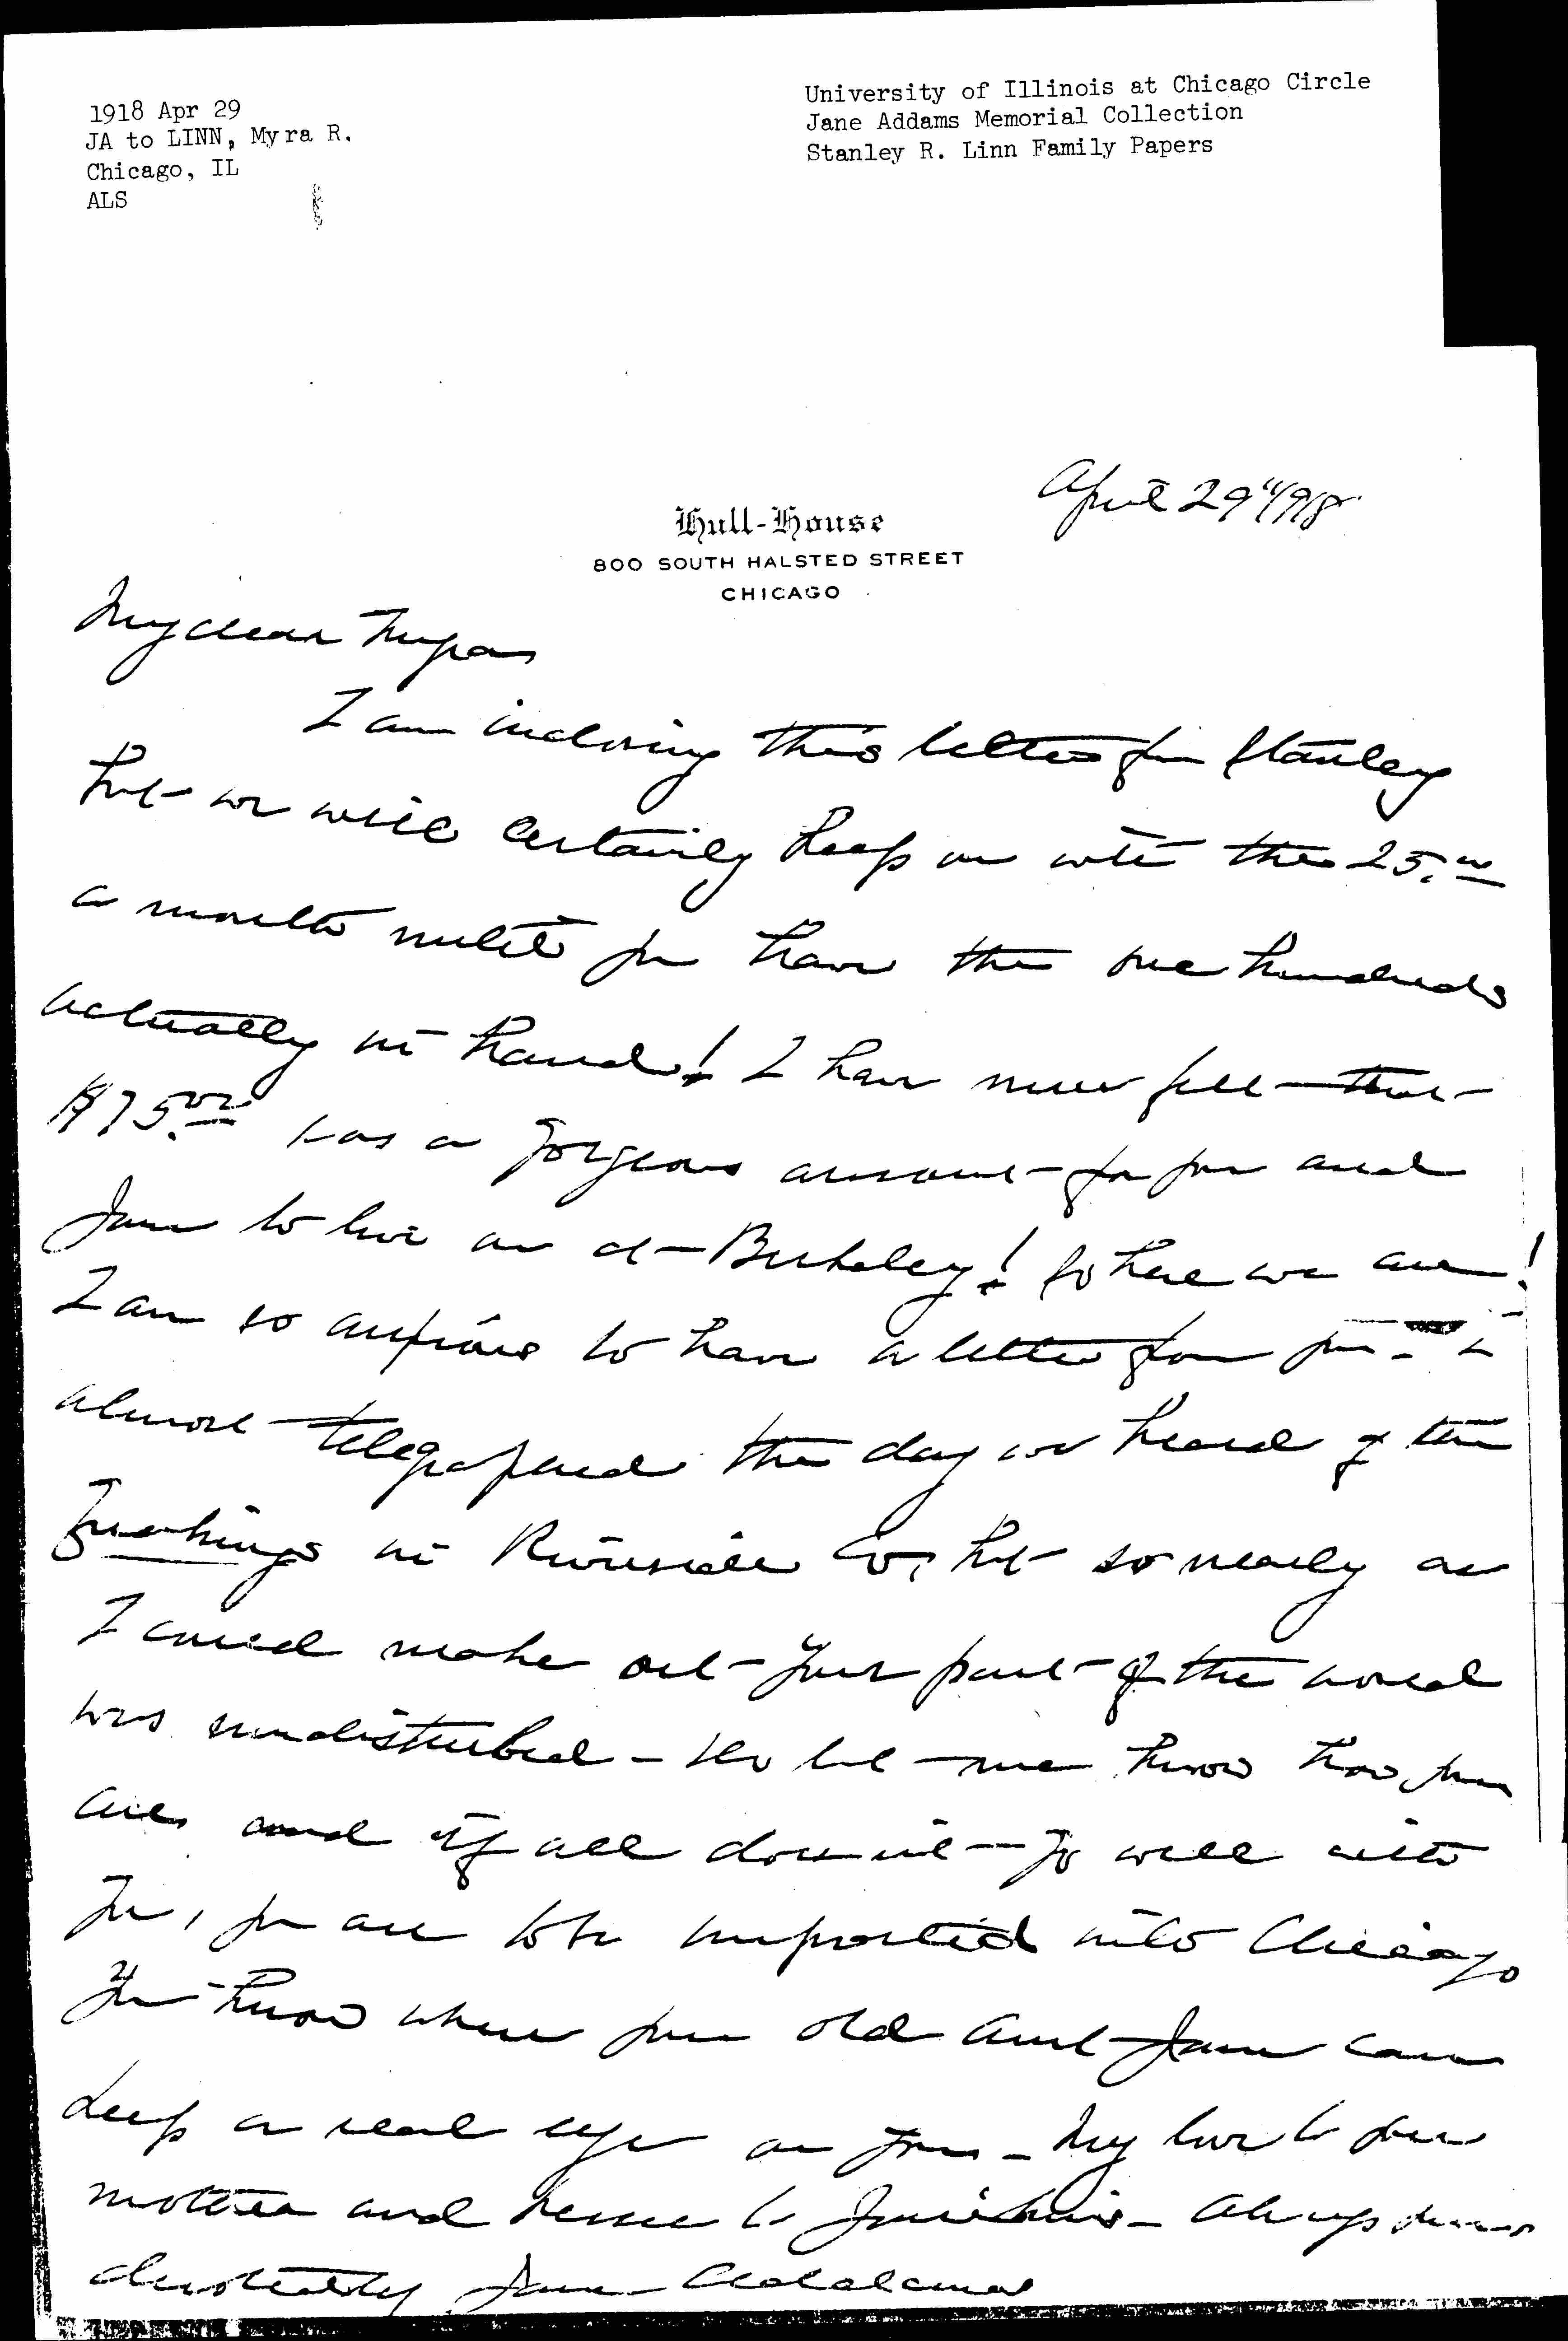 1918 Apr 29
JA to LINN, Myra R.
Chicago, IL
ALS
University of Illinois at Chicago Circle
Jane Addams Memorial Collection
Stanley R. Linn Family Papers
April 29" 1918
Hull-House
800 SOUTH HALSTED STREET
CHICAGO
My dear Myra
I am inclosing this letter from Stanley
but we will certainly keep on with the 25.00
a month until you have the one hundred
actually in hand! I have never felt that
$75.00 was a gorgeous amount for you and
Jane to live on at Berkeley! So here we are!
I am so anxious to have a letter from you - I
almost telegraphed the day we heard of the
quakings in Riverside Co, but so nearly as
I could make out your part of the world
was undisturbed - Do let me know how you
are and if all does not go well with
you, you are to be imported into Chicago
You know where your old Aunt Jane can
keep a real eye on you - My love to your
mother and to always yours
devotedly Jane Addams